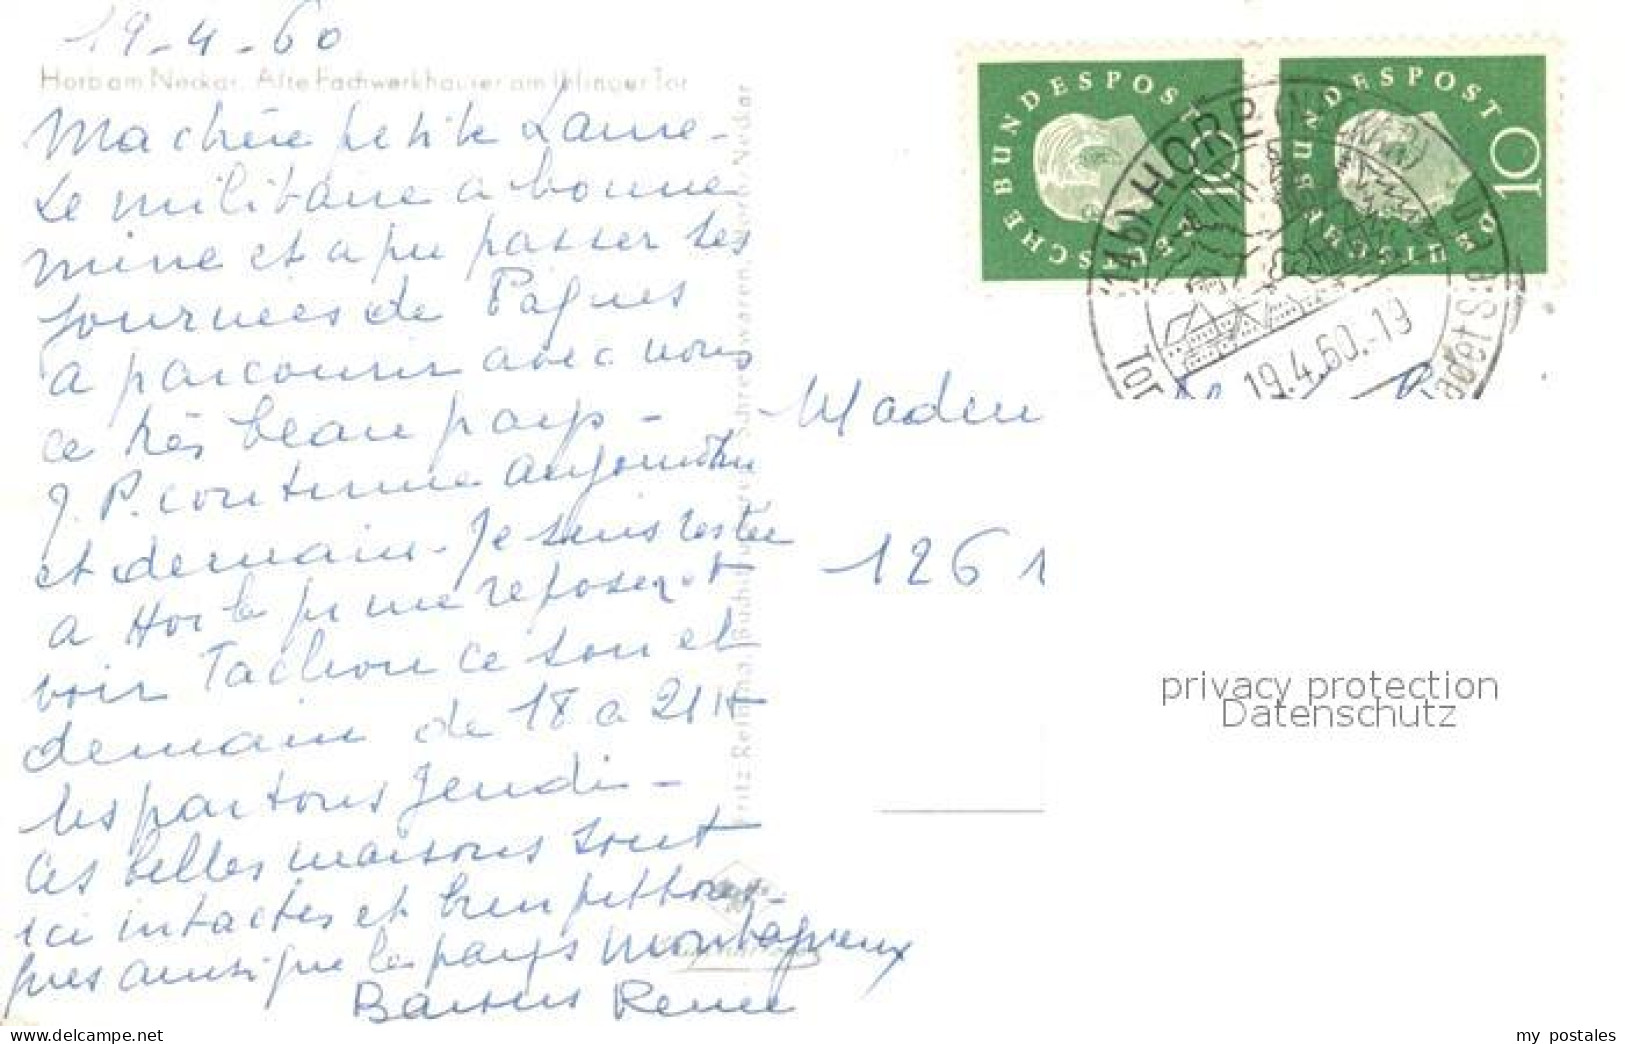 19-4-60
Horb am Neckar. Alte Fachwerkhäuser am Ihlinger Tor
Ma chère petite
Le militaire a bonne
mine et a pu passer les
journées de Pâques
a parcourir avec nous
ce très beau pays -
J.P. continue aujourd'hui
et demain - Je suis restée
a Horb pr me reposer et
voir Tachon ce soir et
demain de 18 a 21 H
Ns partons Jeudi -
Les belles maisons sont
ici intactes et bien pittores-
ques ainsi que le pays montagneux
Baisers Renée
Fritz Reichma Buchbinderei Schreibwaren, Horb/Neckar
DEUTSCHE BUNDESPOST
10
DEUTSCHE BUNDESPOST
10
(14b) HORB (NECKAR)
19.4.60.-19
Tor
Madem
1261
privacy protection
Datenschutz
www.delcampe.net
my_postales